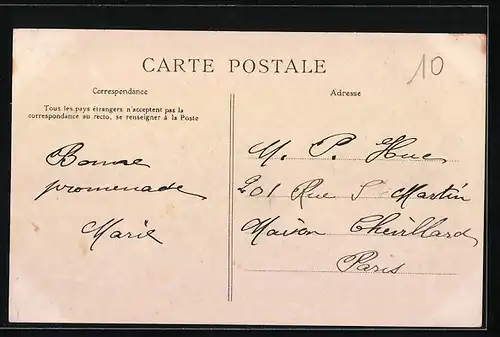 CARTE POSTALE
10
Correspondance
Tous les pays étrangers n'acceptent pas la
correspondance au recto, se renseigner à la Poste
Bonne
promenade
Marie
Adresse
M. P. Hue
201 Rue S Martin
Maison Chevillard
Paris